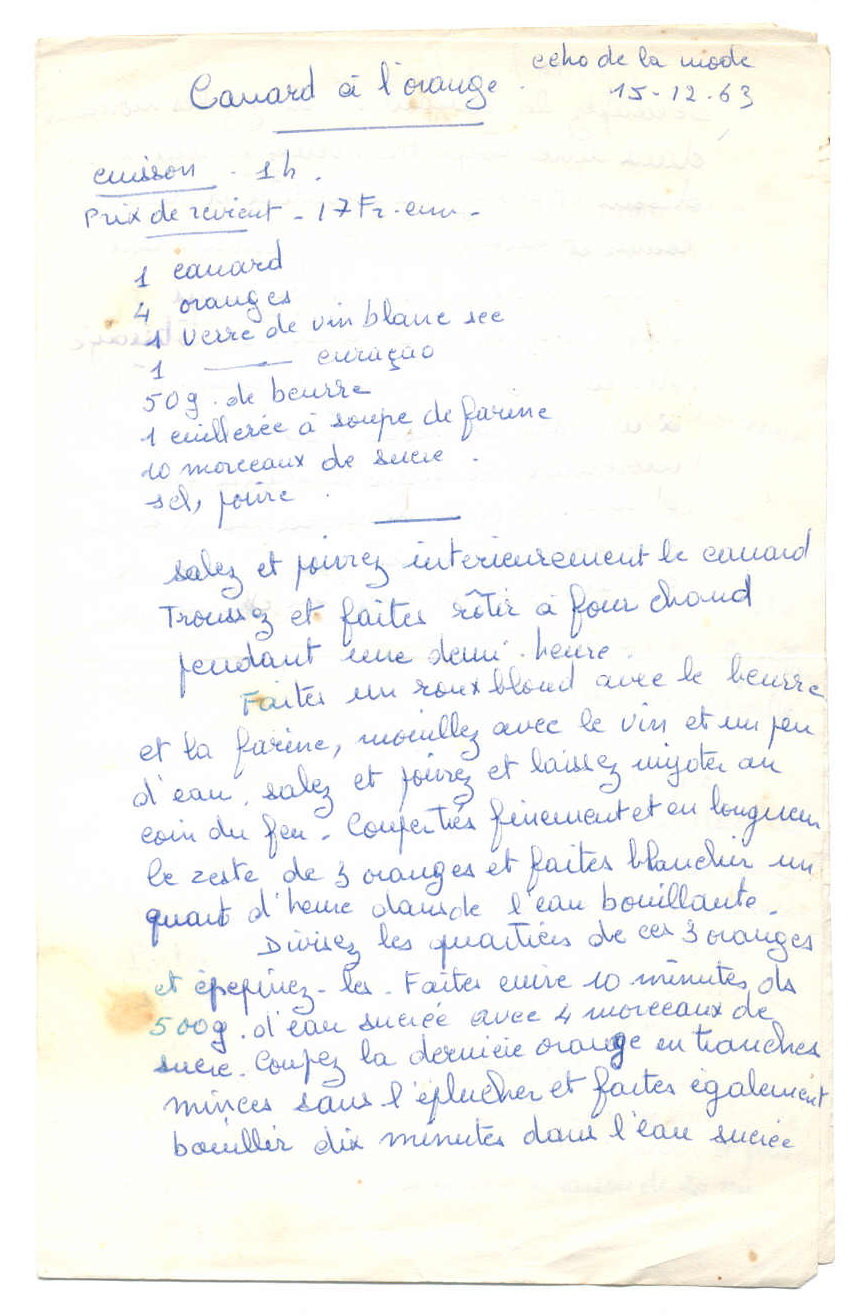 echo de la mode
Canard à l'orange.
15-12.63
cuisson - 1h.
Prix de revient - 17 Fr. env -
1 canard
4 oranges
1 verre de vin blanc sec
1 —— curaçao
50g. de beurre
1 cuillerée à soupe de farine
10 morceaux de sucre.
sel, poivre.
salez et poivrez intérieurement le canard
Troussez et faites rôtir à four chaud
pendant une demi-heure.
Faites un roux blond avec le beurre
et la farine, mouillez avec le vin et un peu
d'eau, salez et poivrez et laissez mijoter au
coin du feu. Coupez très finement et en longueur
le zeste de 3 oranges et faites blanchir un
quart d'heure dans de l'eau bouillante.
Divisez les quartiers de ces 3 oranges
et épepinez-les. Faites cuire 10 minutes ds
500g. d'eau sucrée avec 4 morceaux de
sucre. Coupez la dernière orange en tranches
minces sans l'éplucher et faites également
bouillir dix minutes dans l'eau sucrée